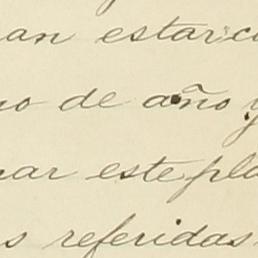 an estar c
o de año y
ar este pla
s referidas